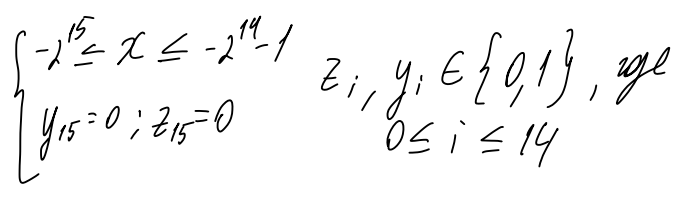 { -2^15 ≤ x ≤ -2^14 - 1
y_15 = 0 ; z_15 = 0
z_i, y_i ∈ {0,1}, где
0 ≤ i ≤ 14